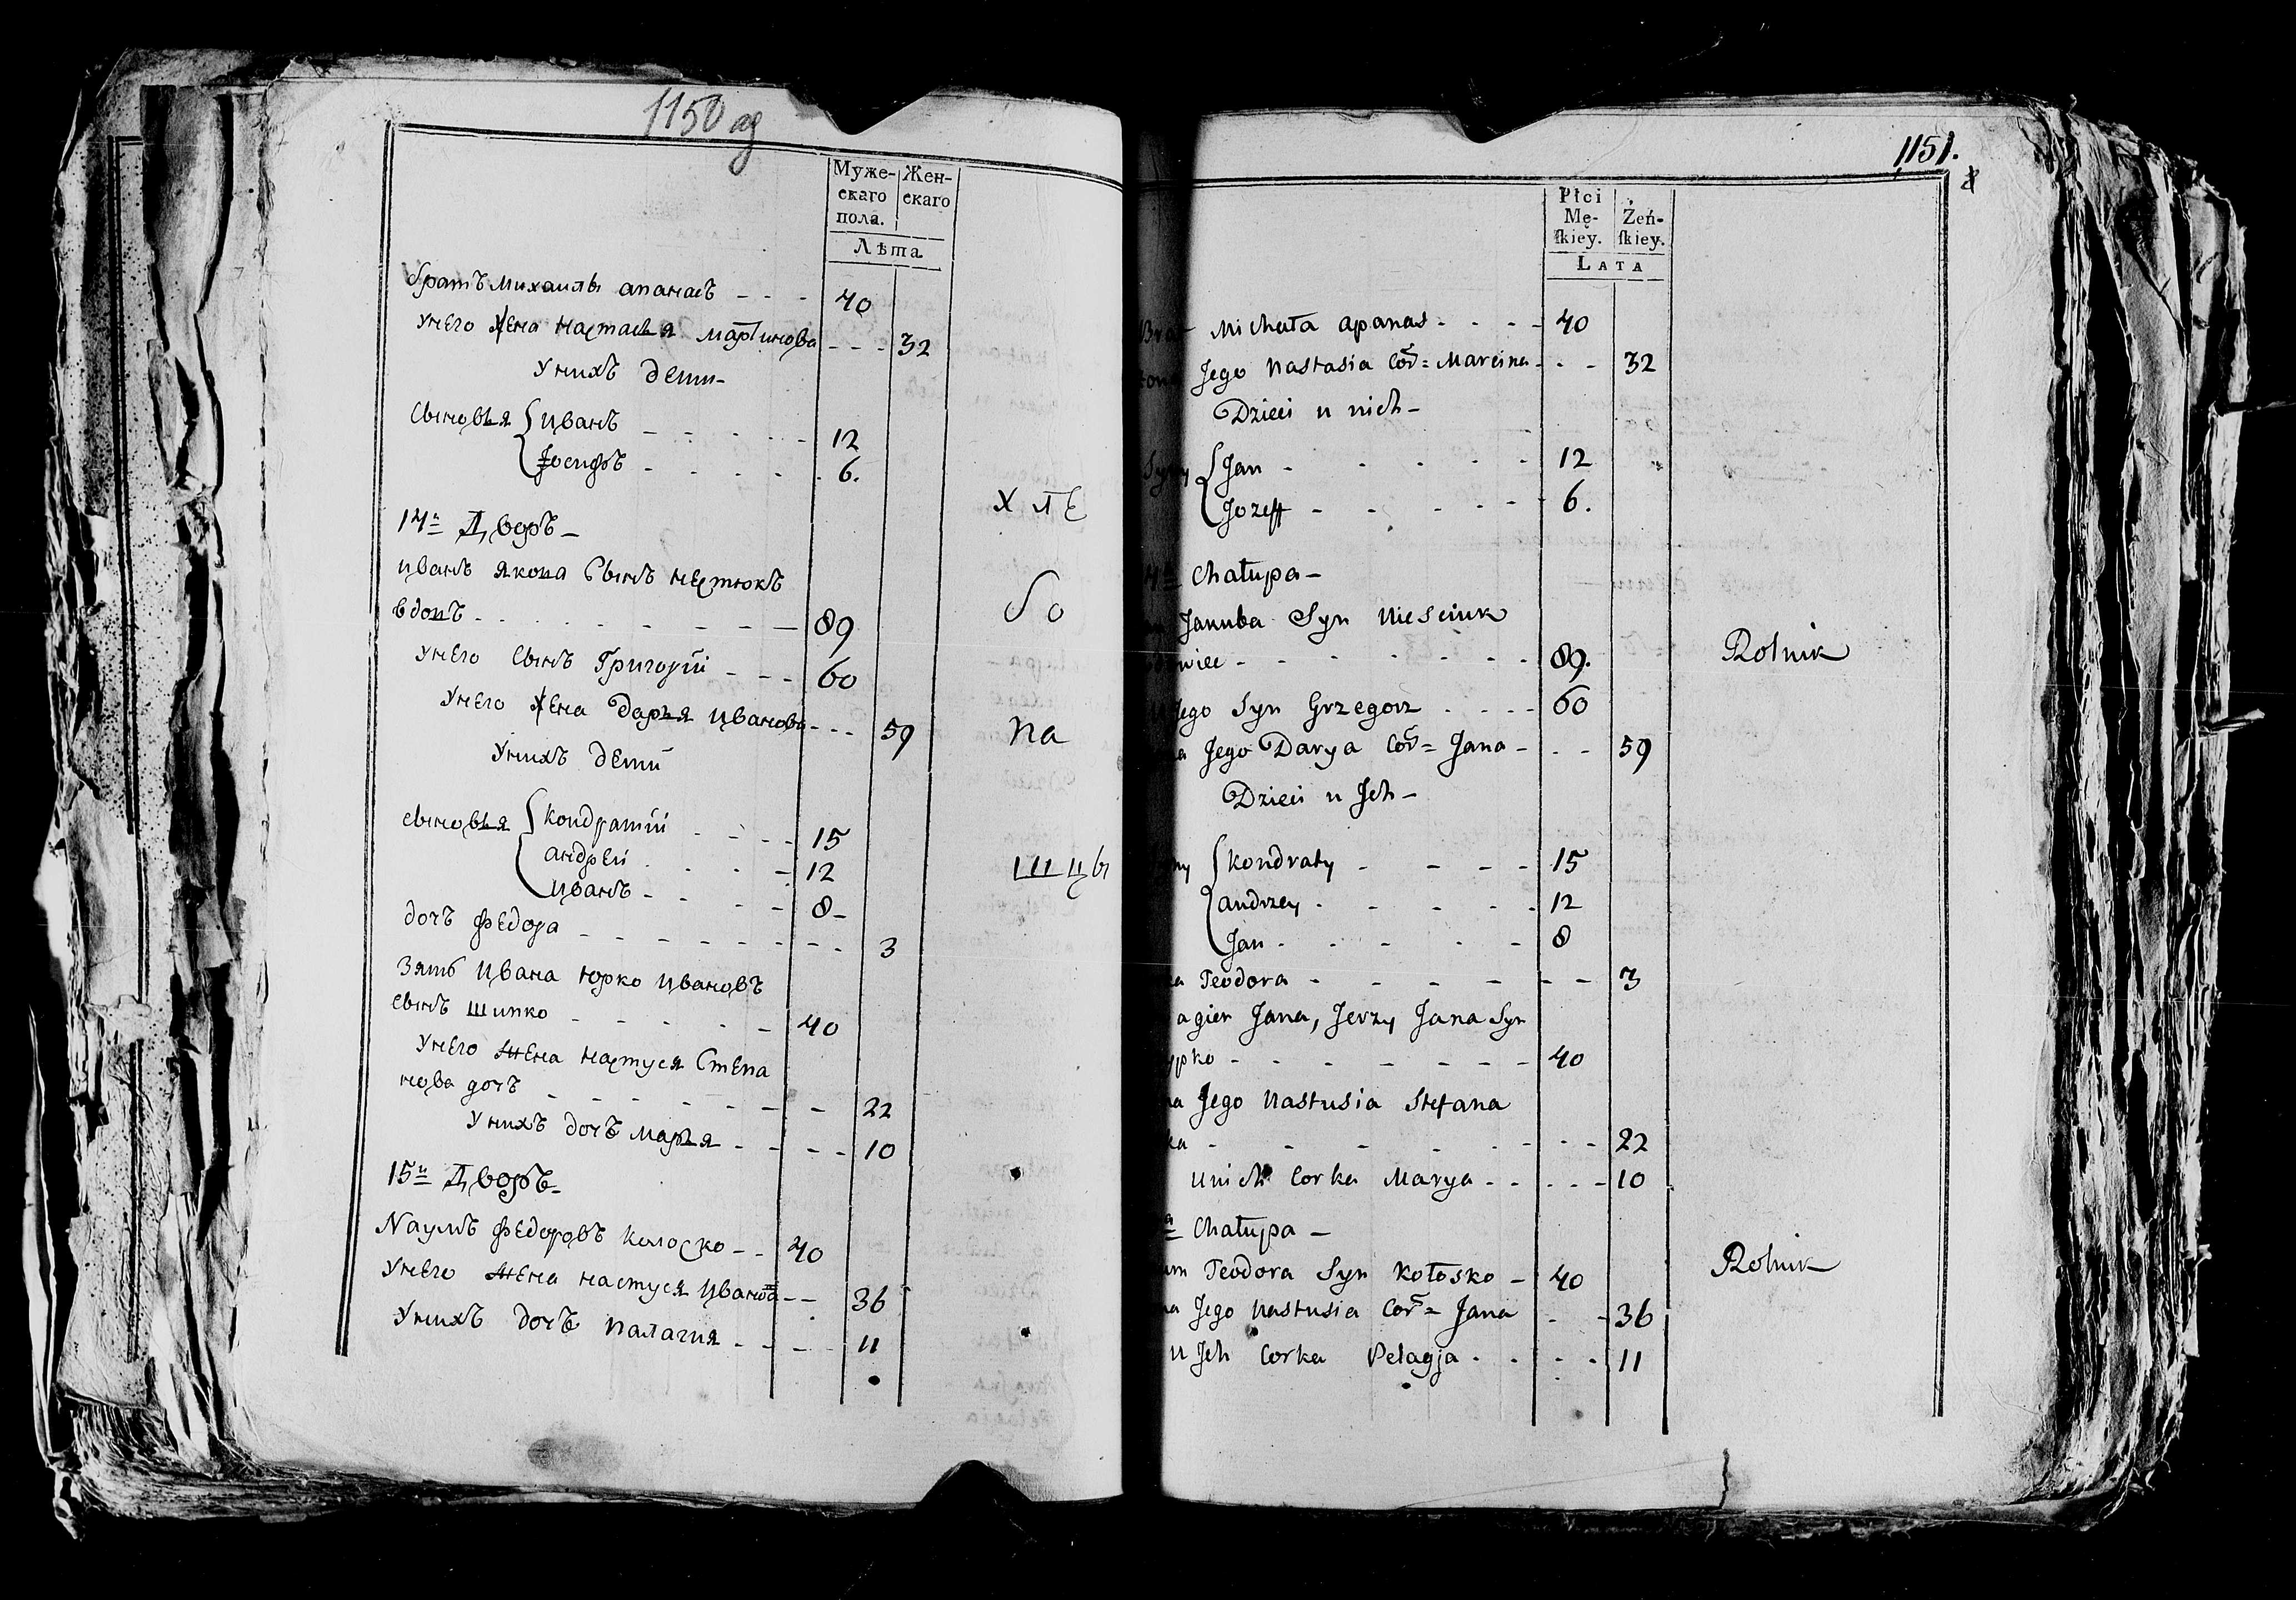 1150 об
Муже-
скаго
пола.
Жен-
скаго
Лѣта
братъ Михаилы апанасъ - - - 40
Унего жена настасья мартинова - - - 32
Унихъ дети-
Сыновья { иванъ - - - - - 12
Iосифъ - - - - - 6.
14й Дворъ -
иванъ якова Сынъ нестюкъ
вдовъ - - - - - - - 89
Унего сынъ Григорiй - - - 60
Унего жена дарья иванова - - - 59
Унихъ дети
сыновья { кондратiй - - - - 15
андрей - - - - 12
иванъ - - - - 8-
дочъ федора - - - - - - - 3
Зять ивана юрко ивановъ
сынъ шипко - - - - - 40
Унего жена настуся Степа
нова дочъ - - - - - - - 22
Унихъ дочъ марья - - - - - 10
15й Дворъ-
Наумъ федоровъ колоско - - 40
Унего жена настуся иванова - - 36
Унихъ дочъ палагия - - - - 11
хле
бо
па
шцы
1151.
Płci
Mę-
ſkiey.
Żeń-
ſkiey.
LATA
Brat Michała apanas - - - - 40
Jego Nastasia Cor= Marcina - - - 32
Dzieci u nich -
Syny { Jan - - - - - 12
Jozeff - - - - - 6.
Chałupa -
Jakuba Syn Niesciuk
wiec - - - - - - - 89. Rolnik
Jego Syn Grzegorz - - - - 60
Jego Darya Cor= Jana - - - 59
Dzieci u Jch -
ny { kondraty - - - - 15
andrzey - - - - - 12
Jan - - - - - 8
ka Teodora - - - - - - - 3
Jana, Jerzy Jana Syn
ypko - - - - - - - 40
na Jego Nastusia Stefana
ka - - - - - - - - 22
unich Corka Marya - - - - - 10
Chałupa -
um Teodora Syn kołosko - 40 Rolnik
na Jego Nastusia Cor= Jana - - 36
u Jch Corka Pelagja - - - - 11